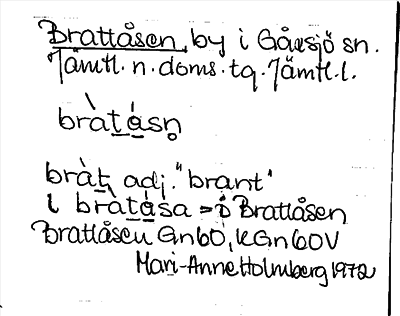 Brattåsen, by i Gåxsjö sn.
Jämtl. n. doms. tg. Jämtl. l.
bràt̲á̲sn̥
bràt̲ adj. "brant"
i bràt̲á̲sa = i Brattåsen
Brattåsen Gn60, KGn60V
Mari-Anne Holmberg 1972